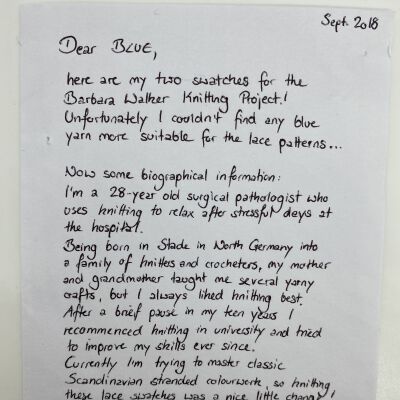 Sept. 2018
Dear BLUE,
here are my two swatches for the
Barbara Walker Knitting Project!
Unfortunately I couldn't find any blue
yarn more suitable for the lace patterns...
Now some biographical information:
I'm a 28-year old surgical pathologist who
uses knitting to relax after stressful days at
the hospital.
Being born in Stade in North Germany into
a family of knitters and crocheters, my mother
and grandmother taught me several yarny
crafts, but I always liked knitting best.
After a brief pause in my teen years I
recommenced knitting in university and tried
to improve my skills ever since.
Currently I'm trying to master classic
Scandinavian stranded colourwork, so knitting
these lace swatches was a nice little change!